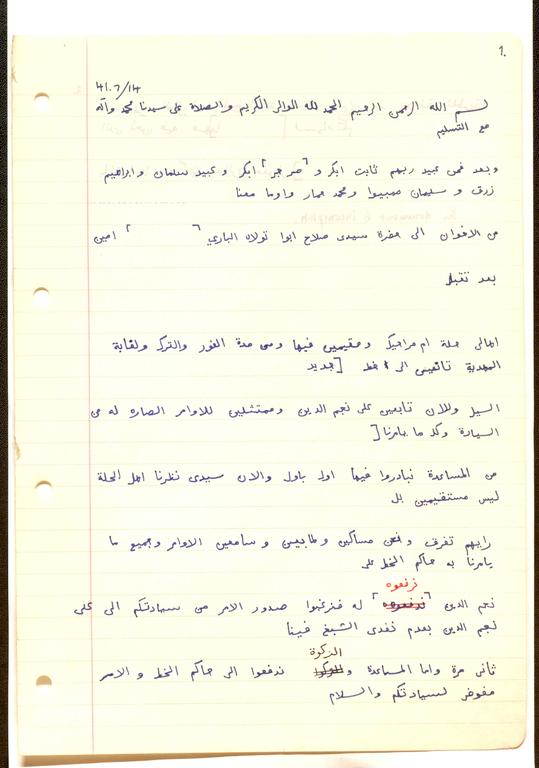 1.
41.7/14
بسم الله الرحمن الرحيم الحمد لله الوالي الكريم والصلاة على سيدنا محمد وآله
مع التسليم
وبعد فمن عبيد ربهم ثابت ابكر و ابكر و عبيد سلمان وابراهيم
زرق و سليمان ومحمد عمار واوما معنا
من الاخوان الى حضرة سيدى صلاح ابوا تولاه البارى [ ] امين
بعد تقبيل
اهالى حلة ام مراحيك ومقيمين فيها ومن مدة الفور والترك ولغاية
المهدية تابعين الى خط [جديد
السيل وللان تابعين على نجم الدين وممتثلين للاوامر الصاره له من
السيادة وكل ما يامرنا [
من المساعدة نبادروا فيها اول باول والان سيدى نظرنا اهل الحلة
ليس مستقيمين بل
رايهم تفرق ونحن مساكين وطايعين و سامعين الاوامر وجميع ما
يامرنا به حاكم الخط على
نرفعوه
نجم الدين له فنرغبوا صدور الامر من سيادتكم الى على
نجم الدين بعدم تعدى الشيخ فينا
الزكوة
ثانى مرة واما المساعدة و ندفعوا الى حاكم الخط و الامر
مفوض لسيادتكم والسلام